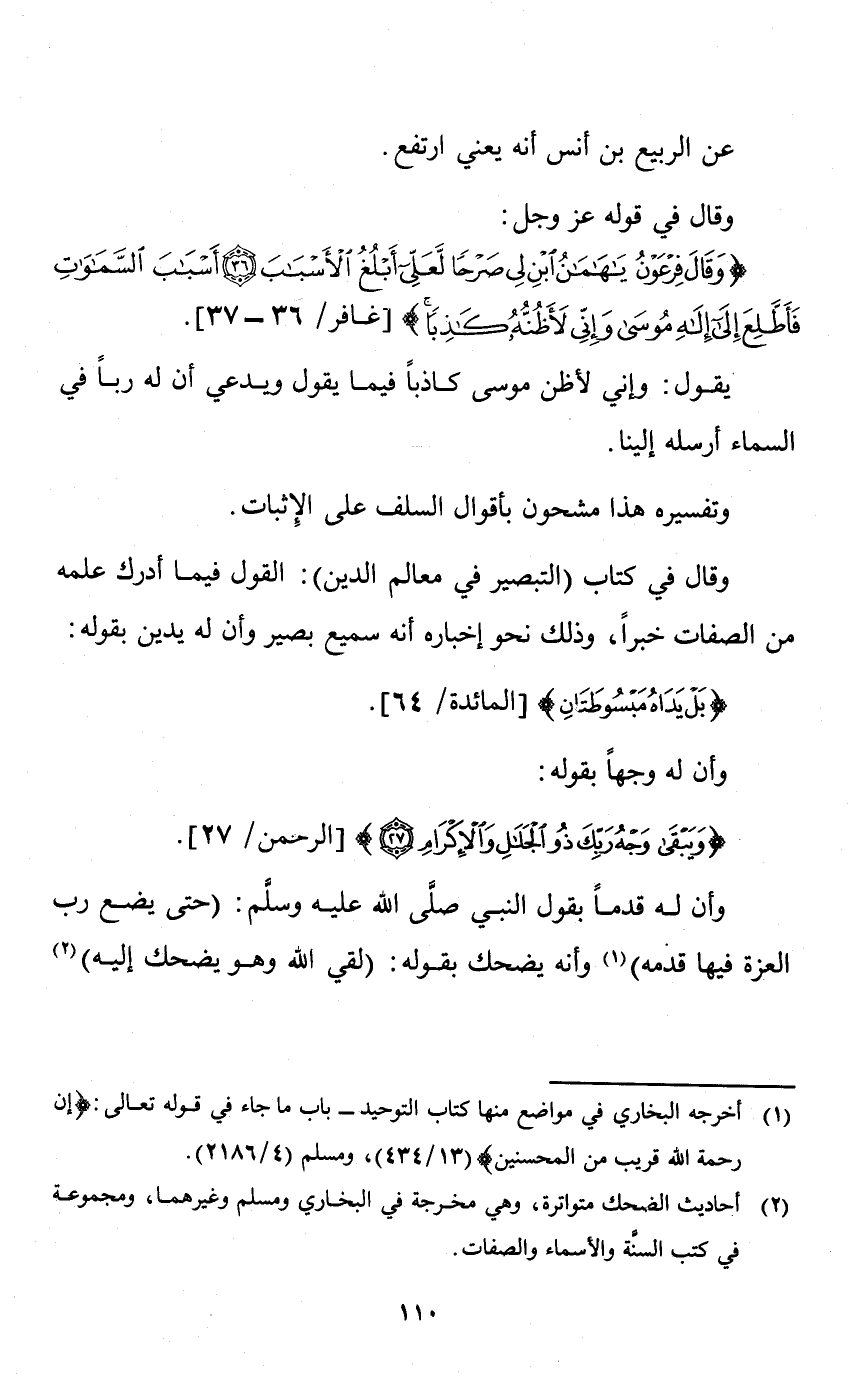 عن الربيع بن أنس أنه يعني ارتفع.
وقال في قوله عز وجل:
﴿وَقَالَ فِرْعَوْنُ يَٰهَٰمَٰنُ ٱبْنِ لِي صَرْحًا لَّعَلِّيٓ أَبْلُغُ ٱلْأَسْبَٰبَ ۝٣٦ أَسْبَٰبَ ٱلسَّمَٰوَٰتِ
فَأَطَّلِعَ إِلَىٰٓ إِلَٰهِ مُوسَىٰ وَإِنِّي لَأَظُنُّهُۥ كَٰذِبًاۚ﴾ [غافر/ ٣٦ – ٣٧].
يقول: وإني لأظن موسى كاذباً فيما يقول ويدعي أن له رباً في
السماء أرسله إلينا.
وتفسيره هذا مشحون بأقوال السلف على الإثبات.
وقال في كتاب (التبصير في معالم الدين): القول فيما أدرك علمه
من الصفات خبراً، وذلك نحو إخباره أنه سميع بصير وأن له يدين بقوله:
﴿بَلْ يَدَاهُ مَبْسُوطَتَانِ﴾ [المائدة/ ٦٤].
وأن له وجهاً بقوله:
﴿وَيَبْقَىٰ وَجْهُ رَبِّكَ ذُو ٱلْجَلَٰلِ وَٱلْإِكْرَامِ ۝٢٧﴾ [الرحمن/ ٢٧].
وأن له قدماً بقول النبي صلَّى الله عليه وسلَّم: (حتى يضع رب
العزة فيها قدمه)(١) وأنه يضحك بقوله: (لقي الله وهو يضحك إليه)(٢)
(١) أخرجه البخاري في مواضع منها كتاب التوحيد – باب ما جاء في قوله تعالى: ﴿إن
رحمة الله قريب من المحسنين﴾ (٤٣٤/١٣)، ومسلم (٢١٨٦/٤).
(٢) أحاديث الضحك متواترة، وهي مخرجة في البخاري ومسلم وغيرهما، ومجموعة
في كتب السنَّة والأسماء والصفات.
١١٠